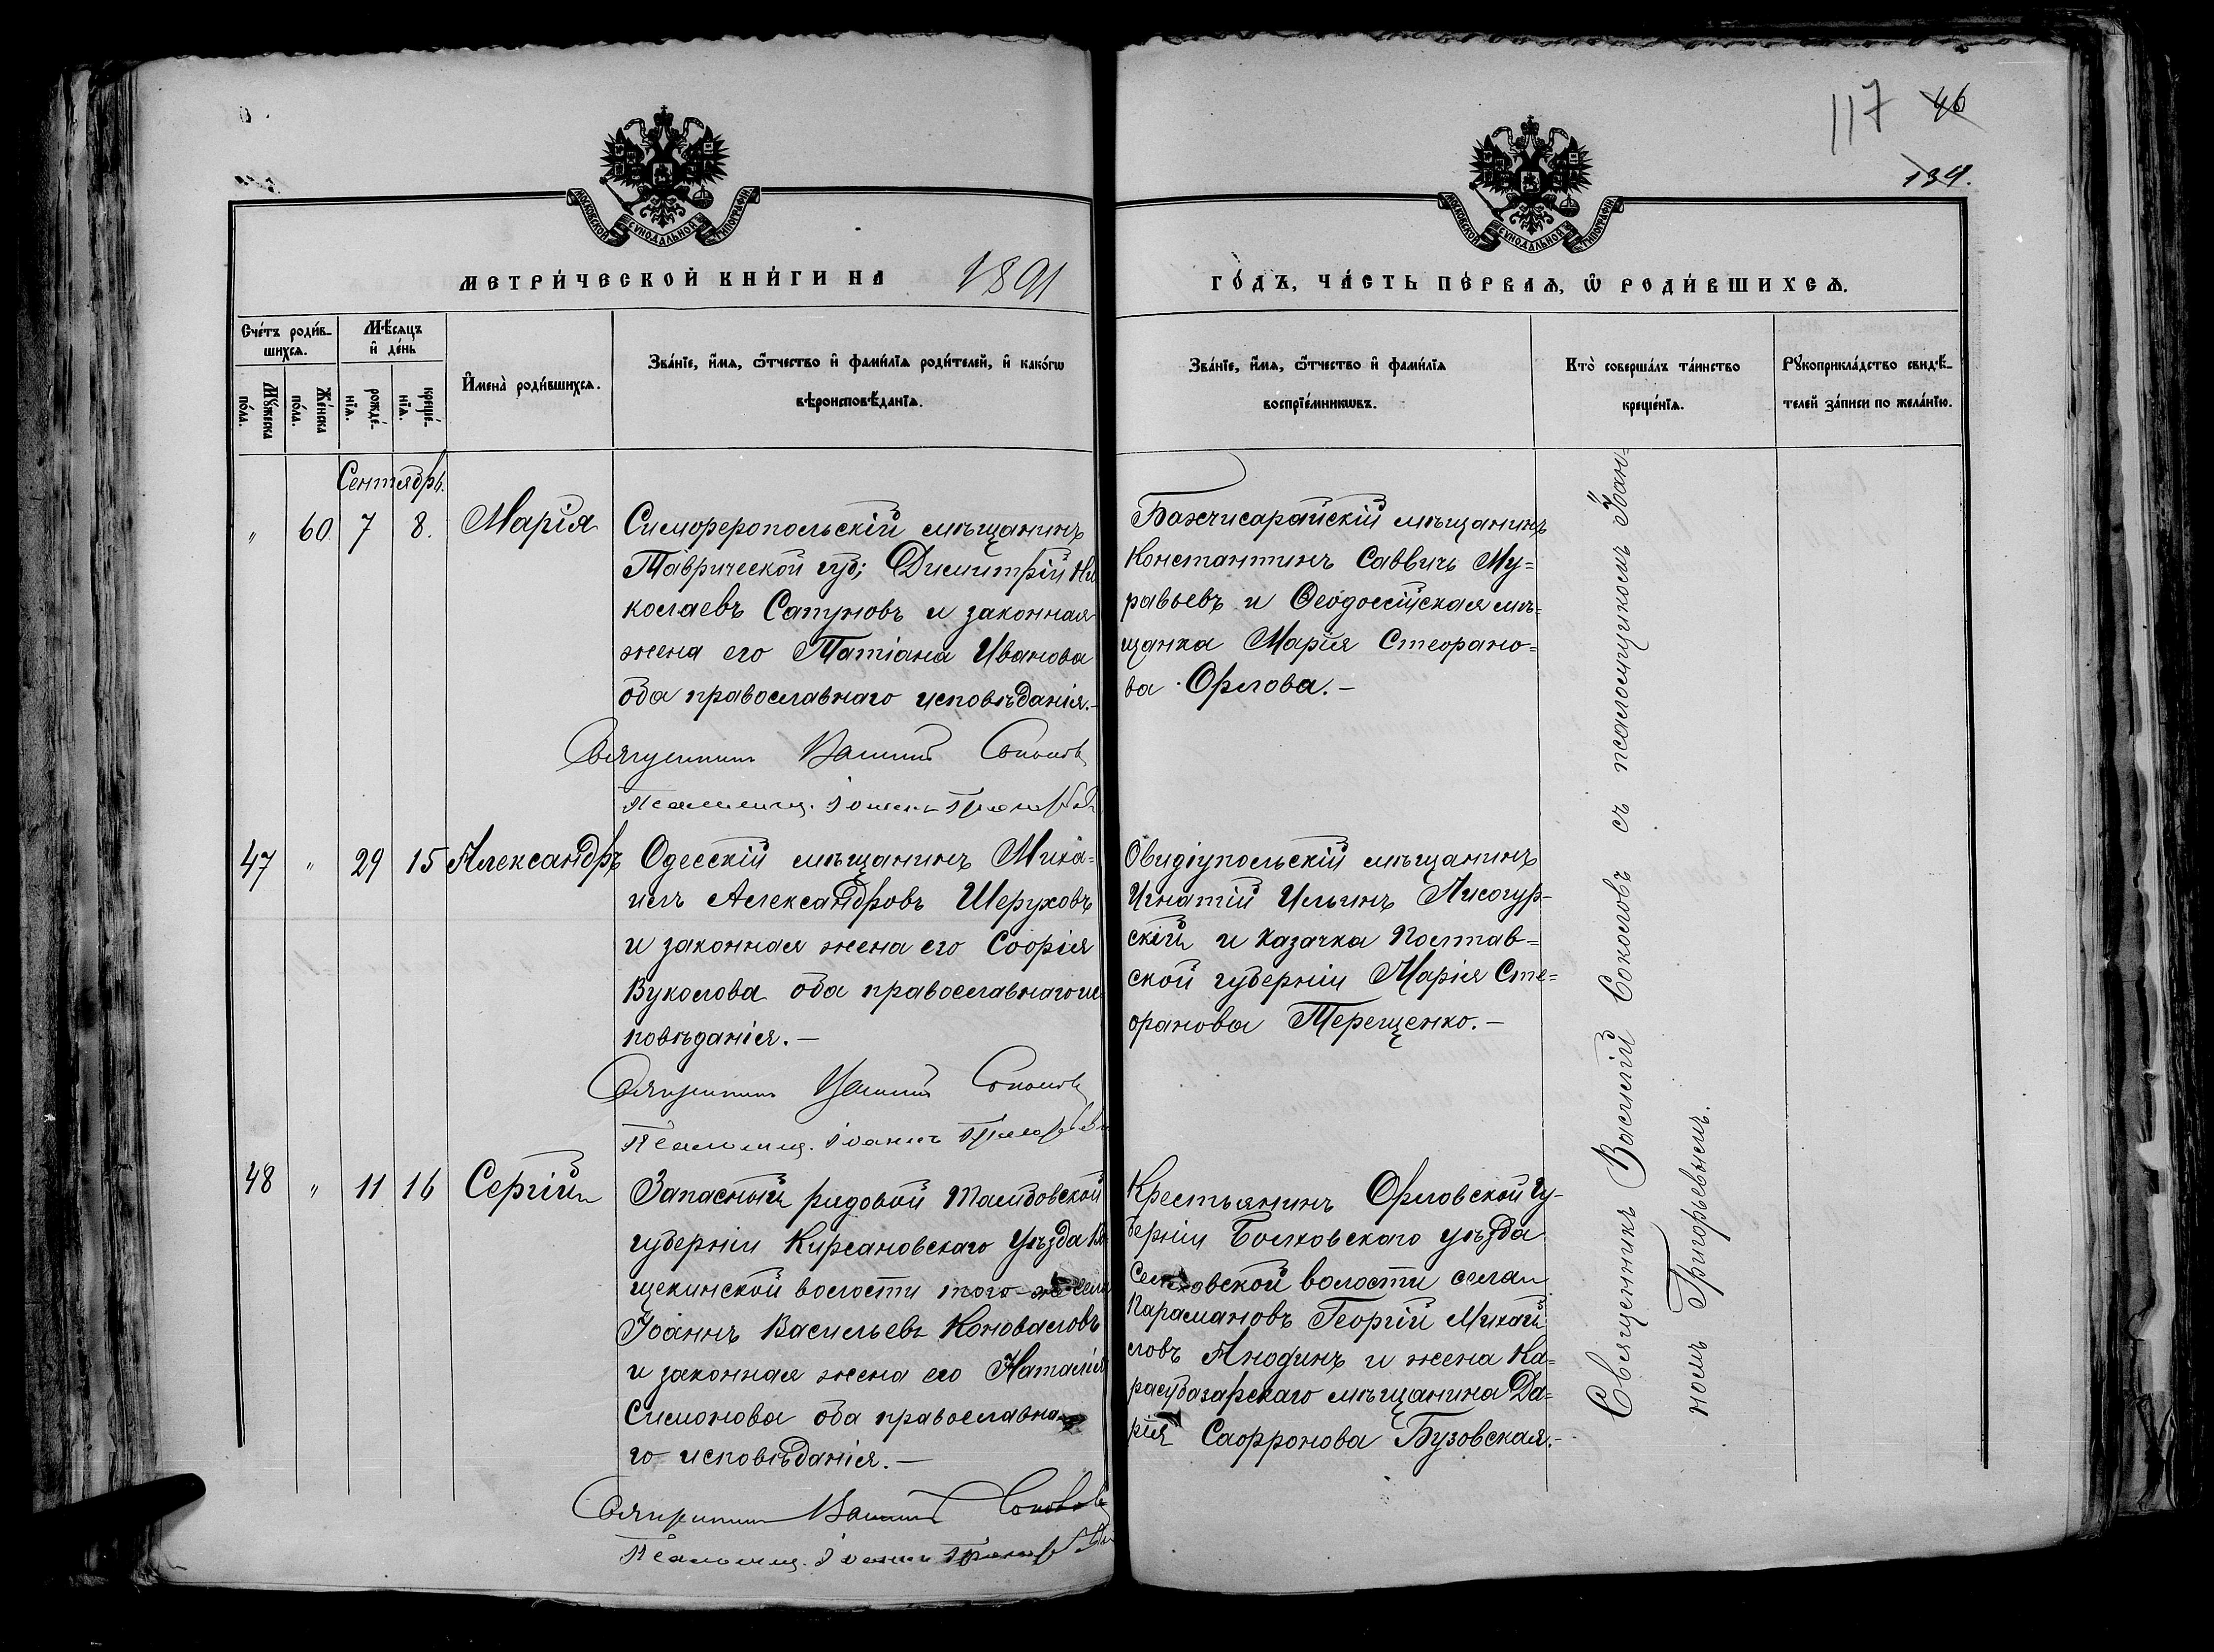 117 46
134.
МОСКОВСКОЙ СУНОДАЛЬНОЙ ТИПОГРАФІИ
МОСКОВСКОЙ СУНОДАЛЬНОЙ ТИПОГРАФІИ
МЕТРИ́ЧЕСКОЙ КНИ́ГИ НА 1891
ГО́ДЪ, ЧА́СТЬ ПЕ́РВАѦ, Ѽ РОДИ́ВШИХСѦ.
Сче́тъ роди́в-
шихсѧ.
Мꙋ́жеска
по́ла.
Же́нска
по́ла.
Мѣ́сѧцъ
и҆ де́нь
рожде́-
нїѧ.
креще́-
нїѧ.
И҆мена̀ роди́вшихсѧ.
Зва́нїе, и҆́мѧ, ѻ҆́тчество и҆ фами́лїѧ роди́телей, и҆ како́гѡ
вѣроисповѣ́данїѧ.
Зва́нїе, и҆́мѧ, ѻ҆́тчество и҆ фами́лїѧ
воспрїе́мникѡвъ.
Кто̀ соверша́лъ та́инство
креще́нїѧ.
Рꙋкоприкла́дство свидѣ́-
телей за́писи по жела́нїю.
Сентябрь.
" 60 7 8. Марія
Симферопольскій мѣщанинъ
Таврической губ; Димитрій Ни
колаевъ Сатуновъ и законная
жена его Татіана Иванова
оба православнаго исповѣданія.–
Священникъ Василій Соколовъ
Псаломщ. Іоаннъ Григорьевъ
Бахчисарайскій мѣщанинъ
Константинъ Саввичъ Му=
равьевъ и Ѳеодосійская мѣ=
щанка Марія Стефано=
ва Орлова.–
47 " 29 15 Александръ
Одесскій мѣщанинъ Миха=
илъ Александровъ Шеруховъ
и законная жена его Софія
Вуколова оба православнаго ис
повѣданія.–
Священникъ Василій Соколовъ
Псаломщ. Іоаннъ Григорьевъ
Овидіупольскій мѣщанинъ
Игнатій Ильинъ Лисогур-
скій и казачка Полтав=
ской губерніи Марія Сте=
фанова Терещенко.–
48 " 11 16 Сергій
Запасный рядовой Тамбовской
губерніи Кирсановскаго уѣзда
щекинской волости того-же села
Іоаннъ Васильевъ Коноваловъ
и законная жена его Наталія
Симонова оба православна
го исповѣданія.–
Священникъ Василій Соколовъ
Псаломщ. Іоаннъ Григорьевъ
Крестьянинъ Орловской гу-
берніи Болховскаго уѣзда
волости села
Парамановъ Георгій Михаи
ловъ Анодинъ и жена Ка=
расубазарскаго мѣщанина Да=
рія Саффронова Бузовская.–
Священникъ Василій Соколовъ съ псаломщикомъ Іоан=
номъ Григорьевымъ.